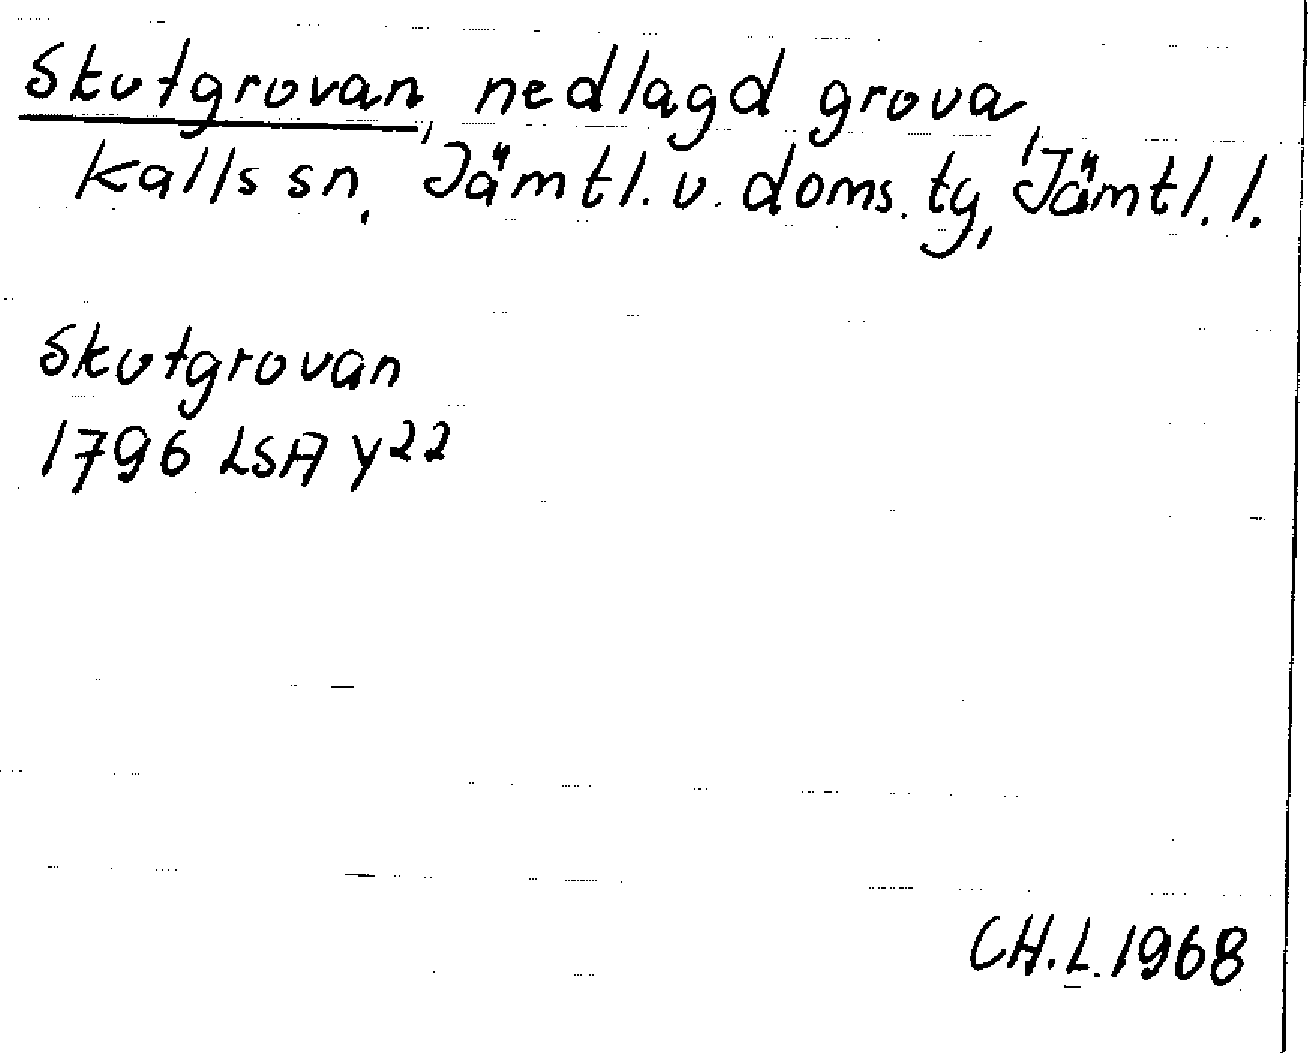 Skutgrovan, nedlagd grova,
Kalls sn, Jämtl. v. doms. tg, Jämtl. l.
Skutgrovan
1796 LSA Y22
CH.L. 1968